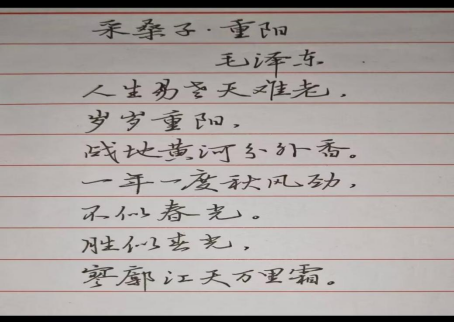 采桑子·重阳
毛泽东
人生易老天难老，
岁岁重阳，
战地黄河分外香。
一年一度秋风劲，
不似春光。
胜似春光，
寥廓江天万里霜。